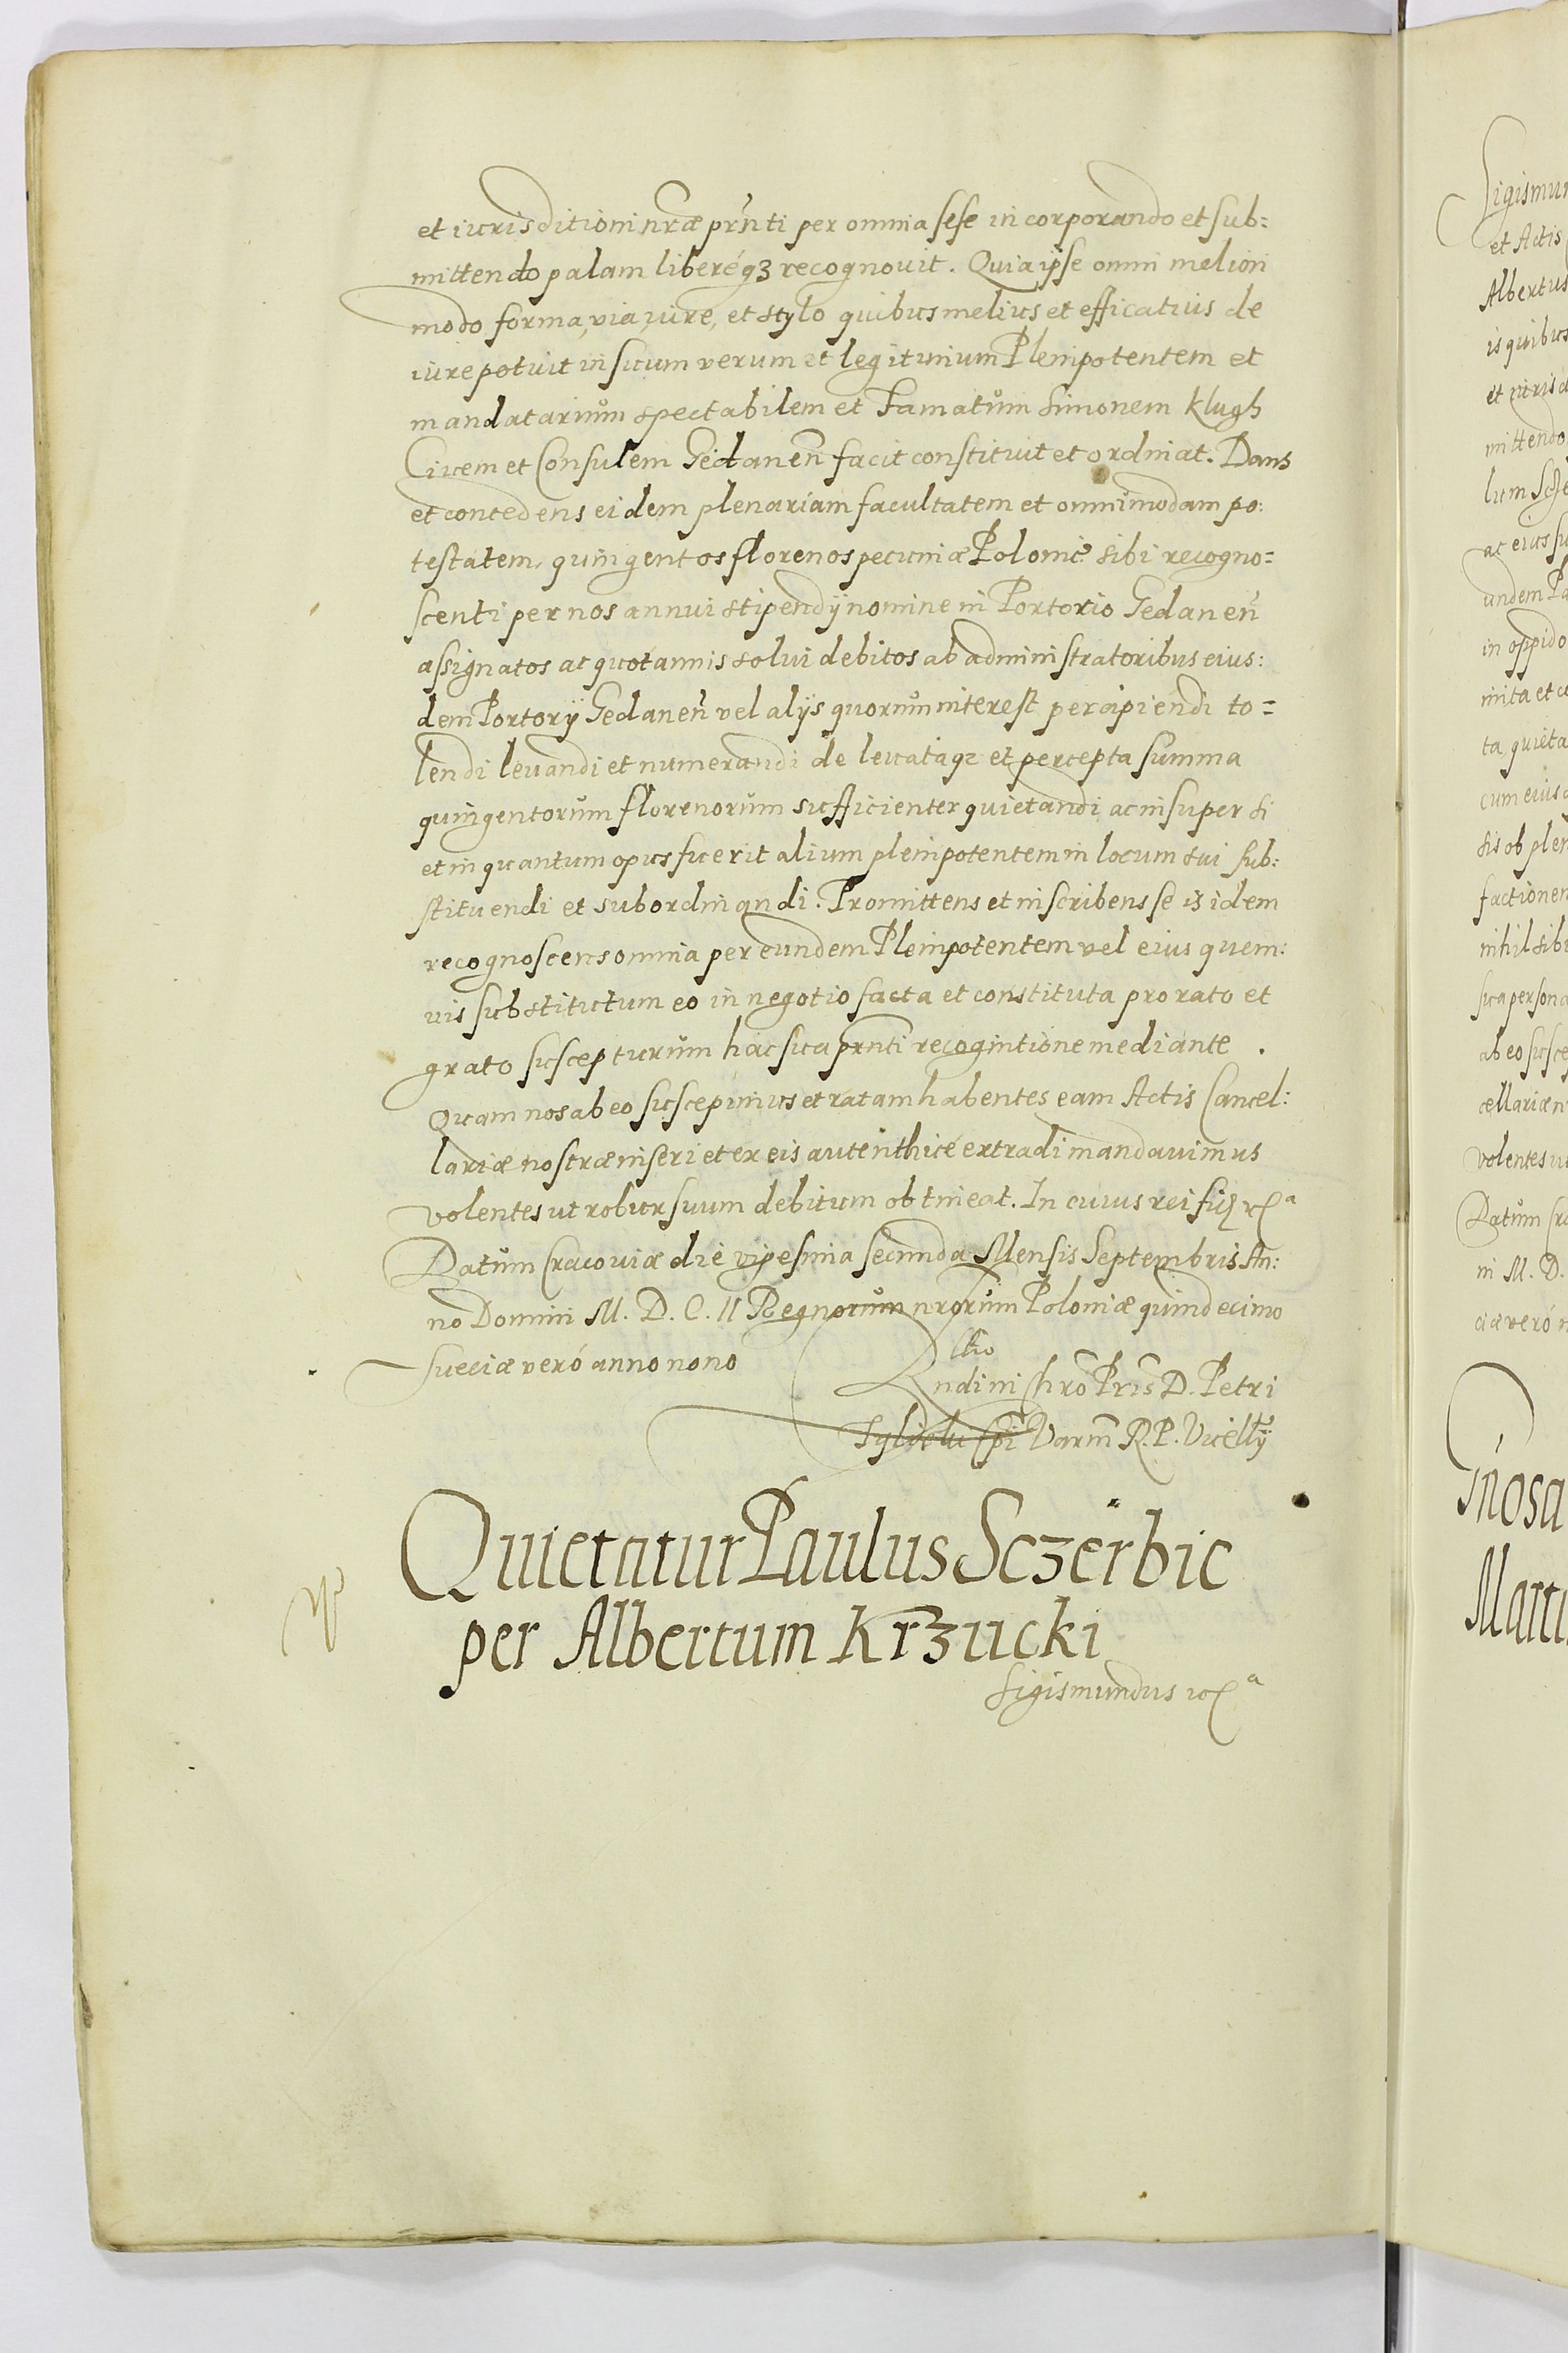 et iurisditioni nræ prnti per omnia sese incorporando et sub:
mittendo palam liberéqз recognovit. Quia ipse omni meliori
modo forma, via, iure, et stylo quibus melius et efficatius de
iure potuit in suum verum et legitimum Plenipotentem et
mandatarium spectabilem et Famatum Simonem Klugh
Civem et Consulem Gedanen facit constituit et ordinat. Dans
et concedens eidem plenariam facultatem et omnimodam po:
testatem, quingentos florenos pecuniæ Polonic sibi recogno=
scenti per nos annui stipendij nomine in Portorio Gedanen
assignatos ac quotannis solui debitos ab administratoribus eius:
dem Portorij Gedanen vel alijs quorum interest percipiendi to=
lendi levandi et numerandi de levataqз et percepta summa
quingentorum florenorum sufficienter quietandi, ac insuper si
et in quantum opus fuerit alium plenipotentem in locum sui sub:
stituendi et subordinandi. Promittens et inscribens se is idem
recognoscens omnia per eundem Plenipotentem vel eius quem:
vis substitutum eo in negotio facta et constituta pro rato et
grato suscepturum hac sua prnti recognitione mediante.
Quam nos ab eo suscepimus et ratam habentes eam Actis Cancel:
lariæ nostræ inseri et ex eis autenthicè extradi mandavimus
volentes ut robur suum debitum obtineat. In cuius rei fid
Datum Cracoviæ die vigesima secunda Mensis Septembris An:
no Domini M. D. C. II Regnorum nrorum Poloniæ quindecimo
Sueciæ verò anno nono
Rndi in Chro Pris D. Petri
Tylicki Epi Varm R. P. Vicecllrij
Quietatur Paulus Sczerbic
per Albertum Krzucki
Sigismundus
Sigismun
et Actis
Albertus
is quibus
et iuris
mittendo
ac eius su
undem Pa
in oppido
ta, quieta
cum eius
sis ob plen
factionen
nihil sibi
sua persona
ab eo susce
cellariæ n
volentes ut
Datum Cra
ni M. D.
ciæ verò n
Gnosa
Marti